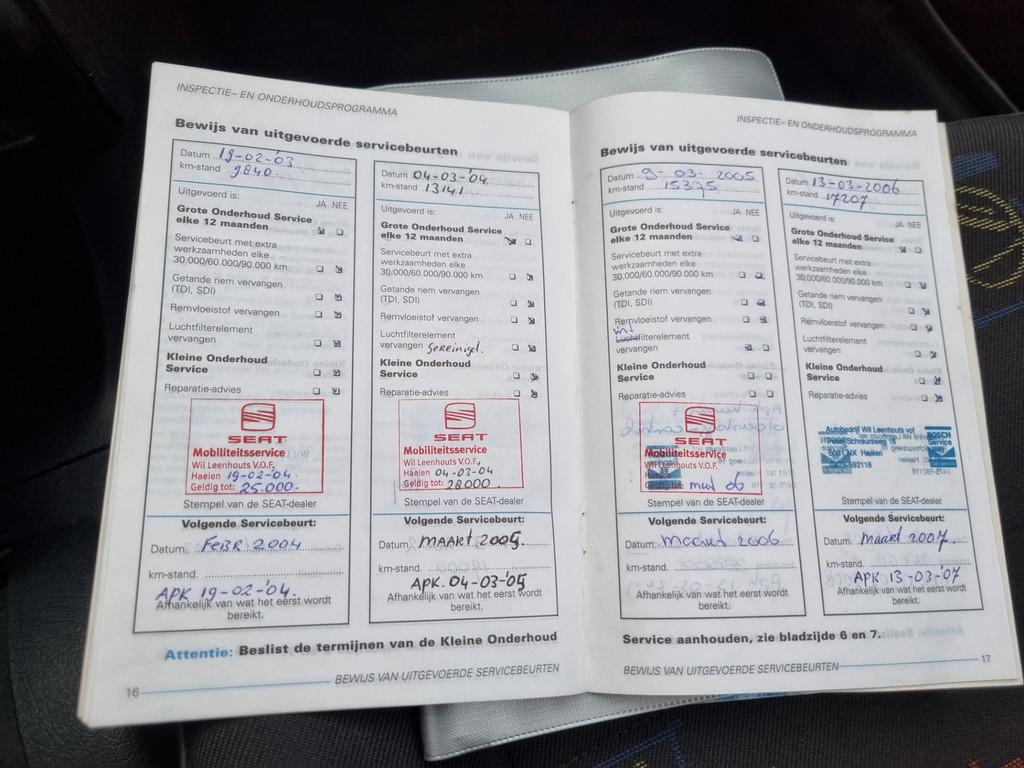 INSPECTIE- EN ONDERHOUDSPROGRAMMA
Bewijs van uitgevoerde servicebeurten
Datum 19-02-'03
km-stand 9840
Uitgevoerd is:
JA NEE
Grote Onderhoud Service
elke 12 maanden
Servicebeurt met extra
werkzaamheden elke
30.000/60.000/90.000 km
Getande riem vervangen
(TDI, SDI)
Remvloeistof vervangen
Luchtfilterelement
vervangen
Kleine Onderhoud
Service
Reparatie-advies
SEAT
Mobiliteitsservice
Wil Leenhouts V.O.F.
Haelen 19-02-'04.
Geldig tot: 25.000.
Stempel van de SEAT-dealer
Volgende Servicebeurt:
Datum. FEBR 2004
km-stand.
APK 19-02-'04.
Afhankelijk van wat het eerst wordt
bereikt.
Datum 04-03-'04
km-stand 13141
Uitgevoerd is:
JA NEE
Grote Onderhoud Service
elke 12 maanden
Servicebeurt met extra
werkzaamheden elke
30.000/60.000/90.000 km
Getande riem vervangen
(TDI, SDI)
Remvloeistof vervangen
Luchtfilterelement
vervangen gereinigd.
Kleine Onderhoud
Service
Reparatie-advies
SEAT
Mobiliteitsservice
Wil Leenhouts V.O.F.
Haelen 04-03-04
Geldig tot: 28000
Stempel van de SEAT-dealer
Volgende Servicebeurt:
Datum. MAART 2005.
km-stand.
APK. 04-03-'05
Afhankelijk van wat het eerst wordt
bereikt.
Attentie: Beslist de termijnen van de Kleine Onderhoud
16
BEWIJS VAN UITGEVOERDE SERVICEBEURTEN
INSPECTIE- EN ONDERHOUDSPROGRAMMA
Bewijs van uitgevoerde servicebeurten
Datum 9-03-2005
km-stand 15375
Uitgevoerd is:
JA NEE
Grote Onderhoud Service
elke 12 maanden
Servicebeurt met extra
werkzaamheden elke
30.000/60.000/90.000 km
Getande riem vervangen
(TDI, SDI)
Remvloeistof vervangen
Luchtfilterelement
vervangen
Kleine Onderhoud
Service
Reparatie-advies
SEAT
Mobiliteitsservice
Wil Leenhouts V.O.F.
Haelen
Geldig tot: 06
Stempel van de SEAT-dealer
Volgende Servicebeurt:
Datum: maart 2006
km-stand.
Afhankelijk van wat het eerst wordt
bereikt.
Datum 13-03-2006
km-stand 17207
Uitgevoerd is:
JA NEE
Grote Onderhoud Service
elke 12 maanden
Servicebeurt met extra
werkzaamheden elke
30.000/60.000/90.000 km
Getande riem vervangen
(TDI, SDI)
Remvloeistof vervangen
Luchtfilterelement
vervangen
Kleine Onderhoud
Service
Reparatie-advies
Autobedrijf Wil Leenhouts vof
BOSCH
Service
Haelen
Stempel van de SEAT-dealer
Volgende Servicebeurt:
Datum: maart 2007
km-stand.
APK 13-03-'07
Afhankelijk van wat het eerst wordt
bereikt.
Service aanhouden, zie bladzijde 6 en 7.
BEWIJS VAN UITGEVOERDE SERVICEBEURTEN
17